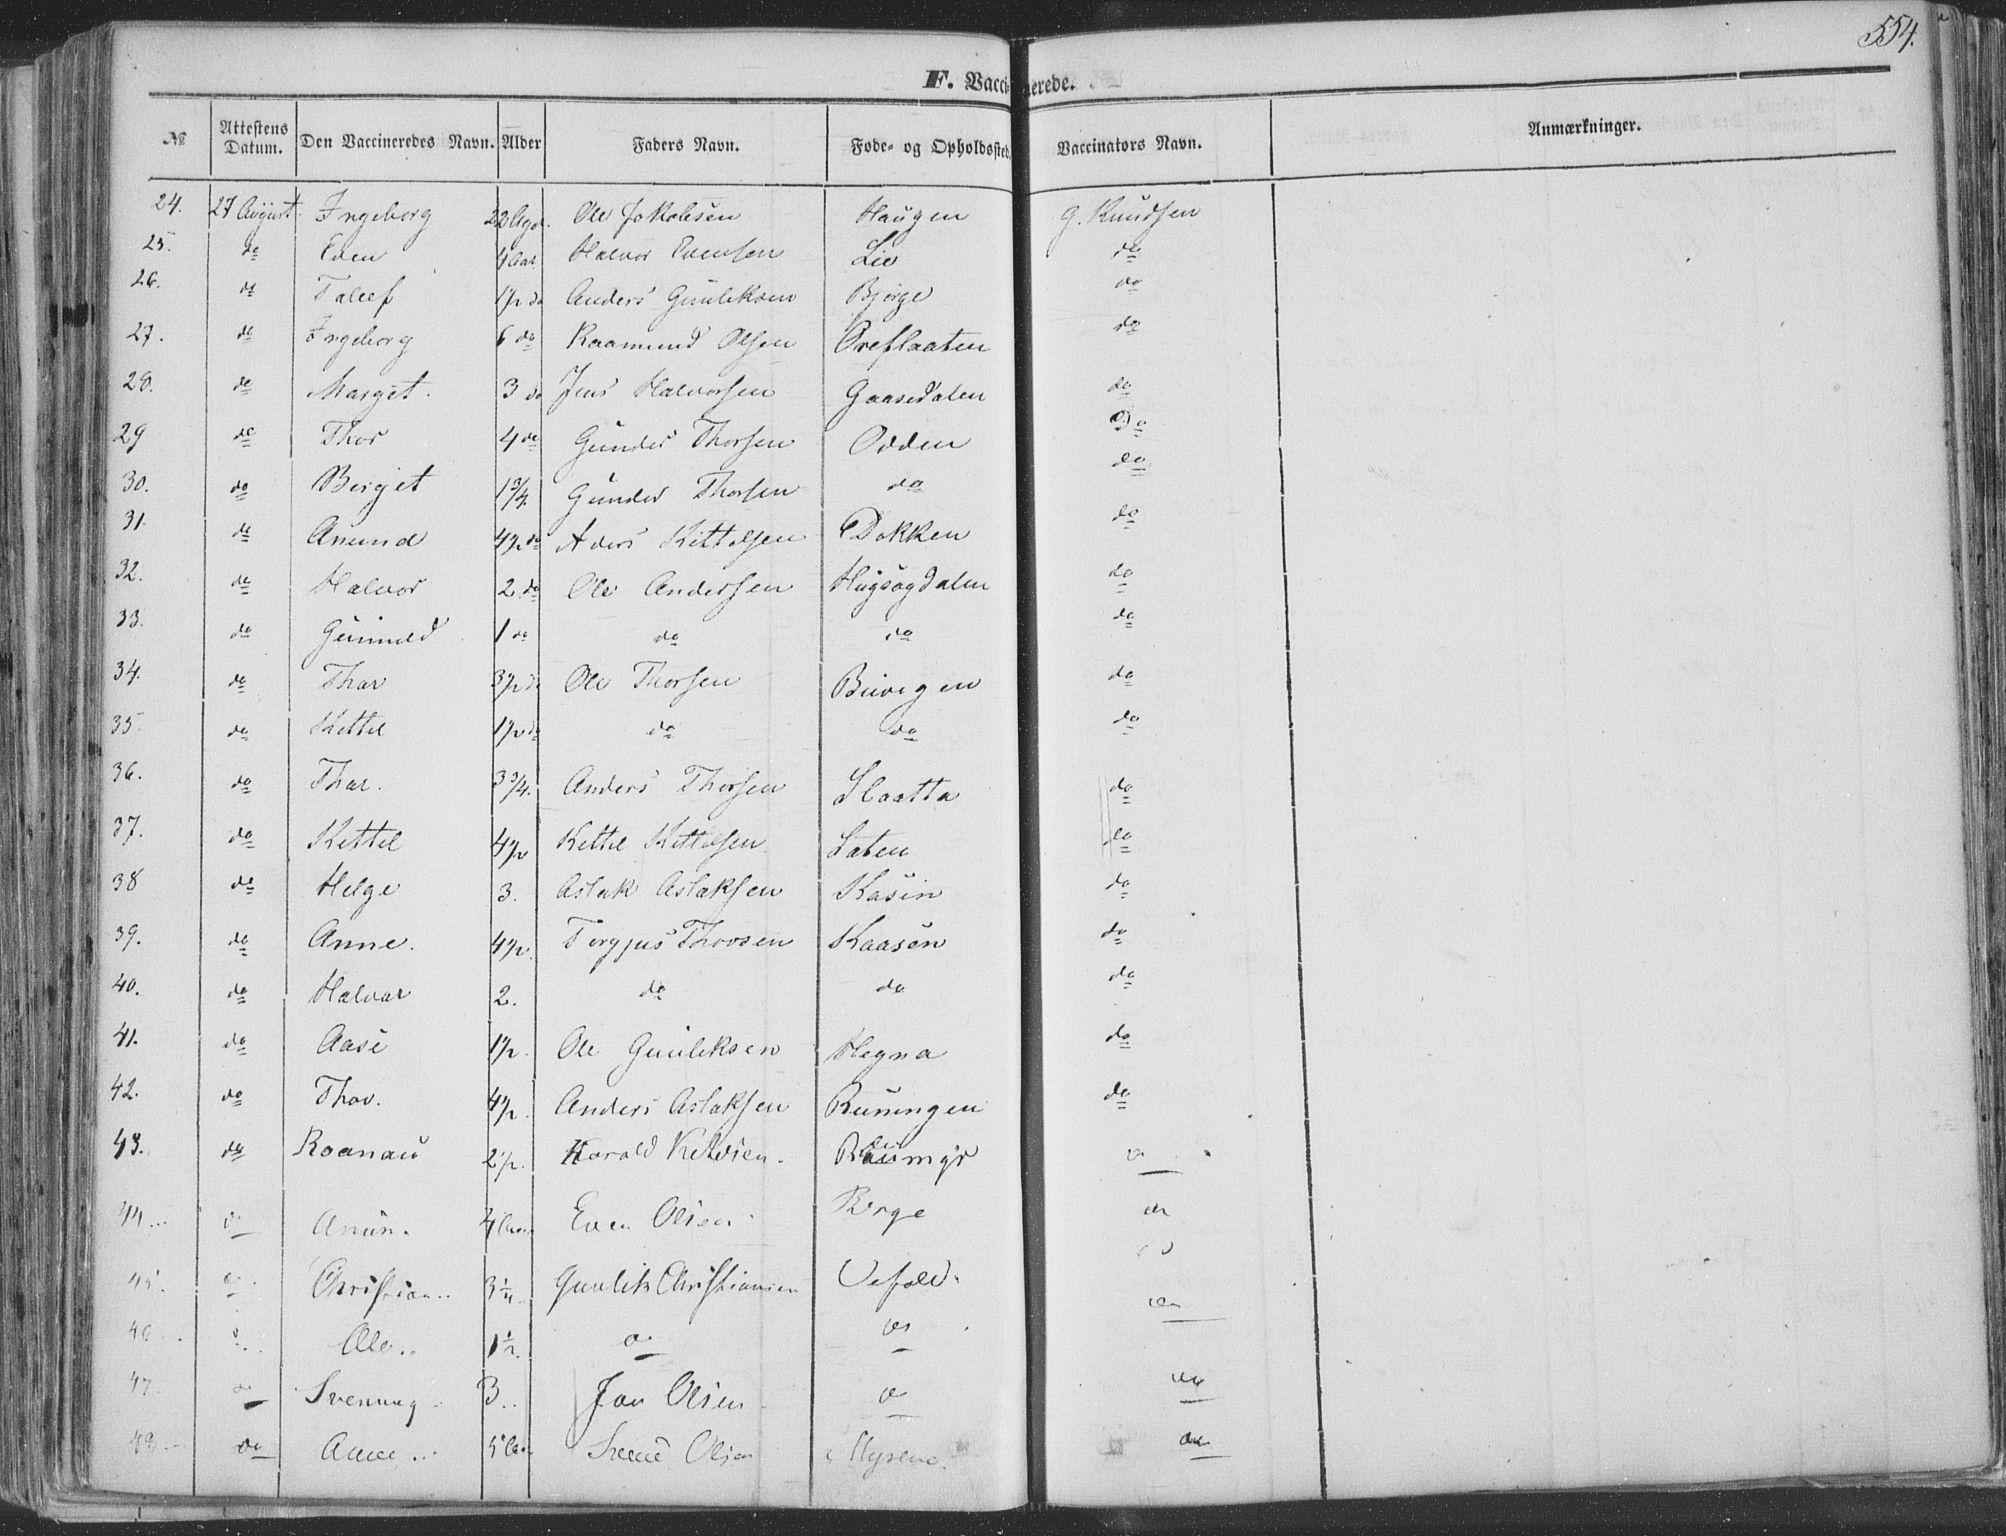 554.
F. Vaccinerede.
№ Attestens Datum. Den Vaccineredes Navn. Alder Faders Navn. Føde- og Opholdssted. Vaccinators Navn. Anmærkninger.
24. 27 August Ingeborg Ole Jakobsen Haugen G. Knudsen
25. do Even 4 Aar Halvor Evensen Lie do
26. do Talef 1½ do Anders Gunleksen Bjørge do
27. do Ingeborg 6 do Raamund Olsen Oreflaaten do
28. do Marget. 3 do Jens Halvorsen Gaasedalen do
29 do Thor 4 do Gunder Thorsen Odden Do
30. do Berget 1¾ Gunder Thorsen do do
31. do Anund 4½ do Aders Kittelsen Dokken do
32. do Halvor 2 do Ole Andersen Hugsogdalen do
33. do Gunuld 1 do do do do
34. do Thor 3½ do Ole Thorsen Buvegen do
35 do Kettel 1½ do do do do
36. do Thor. 3¾. Anders Thorsen Slaatta do
37. do Kettel 4½ Kettel Kettelsen Laten do
38 do Helge 3. Aslak Aslaksen Kasin do
39. do Anne. 4½. Tergjus Thorsen Kaasen do
40. do Halvor 2. do do do
41. do Aase 1½. Ole Gunleksen Hegna do
42. do Thov. 4½. Anders Aslaksen Runingen do
43. do Roanau 2½. Harald Ketelsen. do
44 do Anun. 4 Aar Even Olsen Berge do
45. do Christian 3¼ Gunlik Christiansen Uefold. do
46 do Ole 1½. do do do
47. do Svenung 3 Jon Olsen do do
48 do Anne 5 Aar Svend Olsen Myrene. do